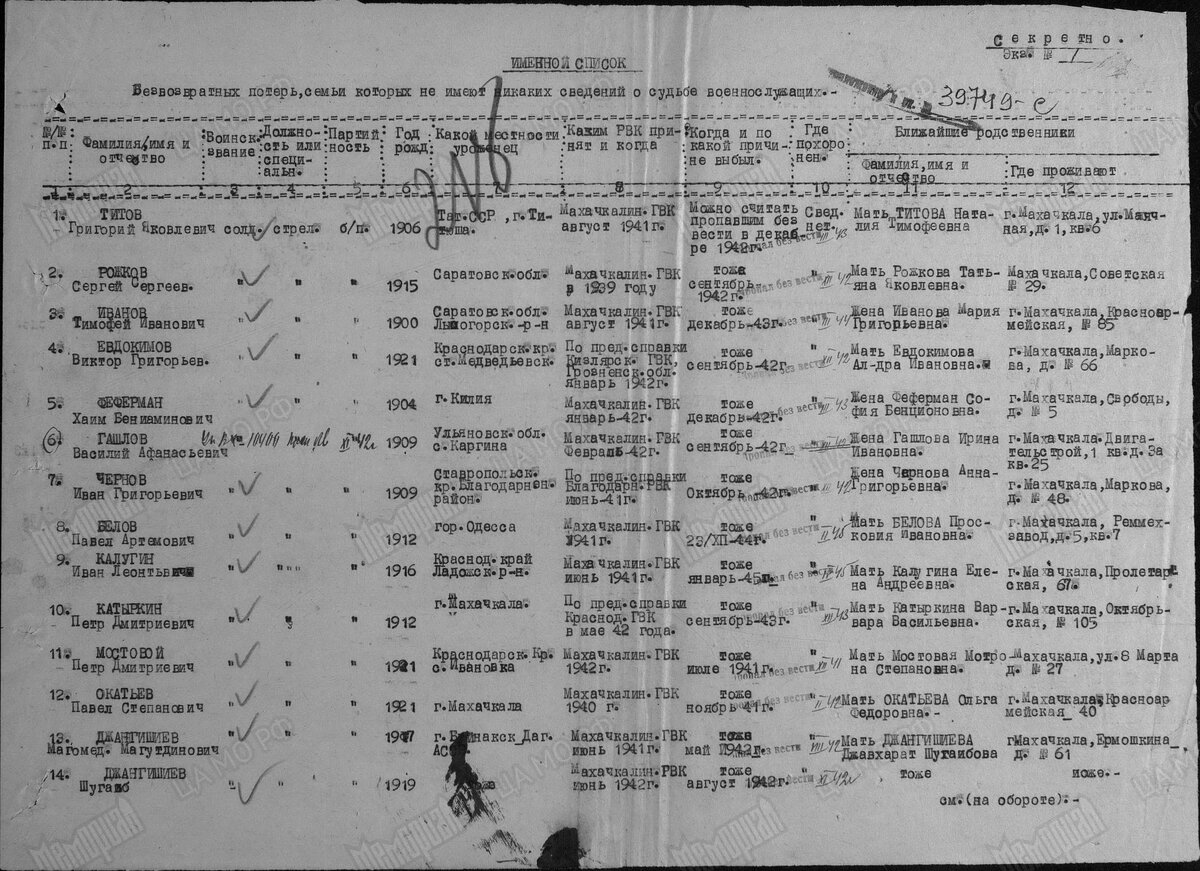 Секретно.
Экз. № 1
ИМЕННОЙ СПИСОК
Безвозвратных потерь, семьи которых не имеют никаких сведений о судьбе военнослужащих.-
39749-с
№/№ п.п Фамилия, имя и отчество Воинск. звание Должность или специальн. Партийность Год рожд. Какой местности уроженец Каким РВК принят и когда Когда и по какой причине выбыл. Где похоронен. Ближайшие родственники
Фамилия, имя и отчество Где проживают
1. 2 3 4 5 6 7 8 9 10 11 12
1. ТИТОВ Тат.ССР, г.Ти- Махачкалин.ГВК Можно считать Свед. Мать ТИТОВА Ната- г.Махачкала, ул.
Григорий Яковлевич солд. стрел. б/п. 1906 тюша. август 1941г. пропавшим без нет. лия Тимофеевна ная, д.1, кв.6
вести в декаб-
ре 1942г.
2. РОЖКОВ Саратовск.обл. Махачкалин.ГВК тоже " Мать Рожкова Тать- Махачкала, Советская
Сергей Сергеев. " " " 1915 в 1939 году сентябрь 1942г. яна Яковлевна. № 29.
3. ИВАНОВ Саратовск.обл. Махачкалин.ГВК тоже " Жена Иванова Мария г.Махачкала, Красноар-
Тимофей Иванович " " " 1900 Лысогорск.-р-н август 1941г. декабрь-43г. Григорьевна. мейская, № 85
4. ЕВДОКИМОВ Краснодарск.кр. По пред.справки тоже " Мать Евдокимова г.Махачкала, Марко-
Виктор Григорьев. " " " 1921 ст.Медведьевск. Кизлярск. ГВК, сентябрь-42г. Ал-дра Ивановна. ва, д. № 66
Грозненск.обл.
январь 1942г.
5. ФЕФЕРМАН " " " 1904 г.Килия Махачкалин.ГВК тоже " Жена Феферман Со- г.Махачкала, Свободы,
Хаим Бениаминович январь-42г. декабрь-42г. фия Бенционовна. д. № 5
6. ГАШЛОВ 1909 Ульяновск.обл. Махачкалин.ГВК тоже " Жена Гашлова Ирина г.Махачкала.Двига-
Василий Афанасьевич с.Каргина Февраль-42г. сентябрь-42г. Ивановна. тельстрой, 1 кв.д.3а
кв.25
7. ЧЕРНОВ Ставропольск. По пред.справки тоже " Жена Чернова Анна- г.Махачкала, Маркова,
Иван Григорьевич " " " 1909 кр.Благодарнен. Благодарн.РВК Октябрь-42г. Григорьевна. д. № 48.
район. июнь-41г.
8. БЕЛОВ гор.Одесса Махачкалин.ГВК тоже " Мать БЕЛОВА Прос- г.Махачкала, Реммех-
Павел Артемович " " " 1912 1941г. 23/ХП-44г. ковия Ивановна. завод, д.5, кв.7
9. КАЛУГИН Краснод.край Махачкалин.ГВК тоже " Мать Калугина Еле- г.Махачкала, Пролетар
Иван Леонтьвич " " " 1916 Ладожск.р-н. июнь 1941г. январь-45г. на Андреевна. ская, 67.
10. КАТЫРКИН г.Махачкала. По пред.справки тоже " Мать Катыркина Вар- г.Махачкала, Октябрь-
Петр Дмитриевич " " " 1912 Краснод.ГВК сентябрь-43г. вара Васильевна. ская, № 105
в мае 42 года.
11. МОСТОВОЙ Краснодарск.Кр. Махачкалин.ГВК тоже " Мать Мостовая Мотро- Махачкала, ул.8 Марта
Петр Дмитриевич " " " 1921 с.Ивановка 1942г. июле 1941г. на Степановна. д. № 27
12. ОКАТЬЕВ Махачкалин.ГВК тоже " Мать ОКАТЬЕВА Ольга г.Махачкала, Красноар
Павел Степанович " " " 1921 г.Махачкала 1940 г. ноябрь-41г. Федоровна.- мейская_ 40
13. ДЖАНГИШИЕВ " " " 1917 г.Буйнакск_Даг. Махачкалин.ГВК тоже " Мать ДЖАНГИШИЕВА гМахачкала, Ермошкина_
Магомед. Магутдинович АС июнь 1941г. май 1942г. Джавхарат Шугаибова д. № 61
14. ДЖАНГИШИЕВ тоже Махачкалин.РВК тоже " тоже тоже.-
Шугаиб " " " 1919 июнь 1942г. август 1942г.
см.(на обороте).-